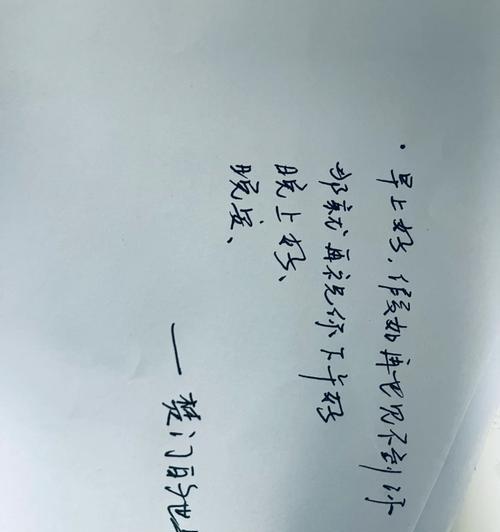 ·早上好，假如再也见不到你
那就再祝你下午好
晚上好、
晚安、
——楚门的世